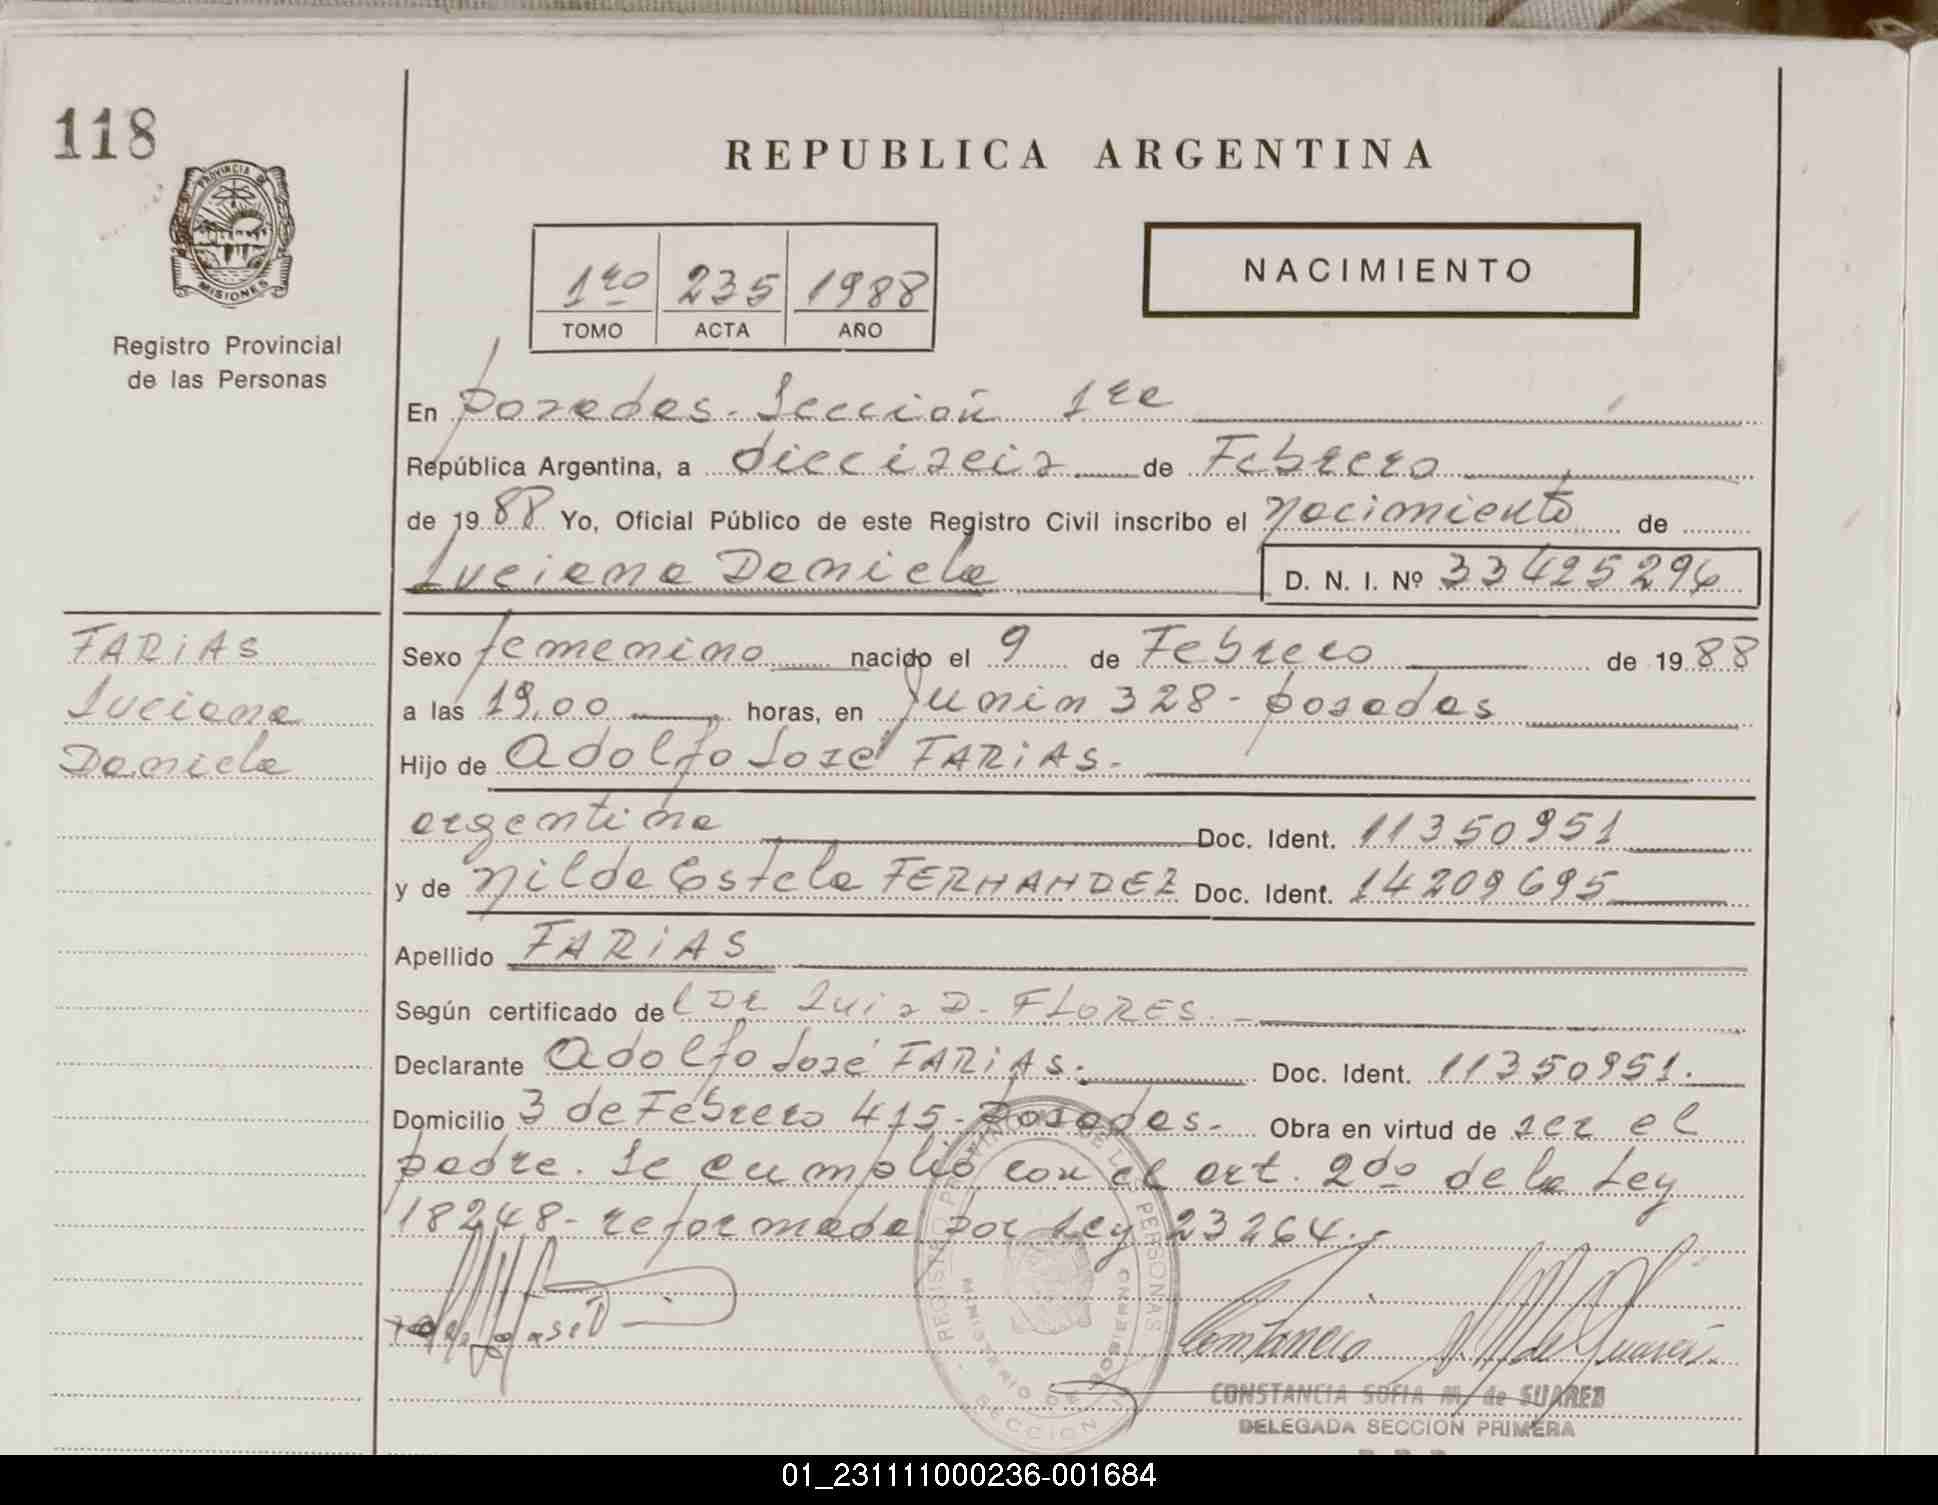 118
REPUBLICA ARGENTINA
PROVINCIA DE
MISIONES
Registro Provincial
de las Personas
1ro 235 1988
TOMO ACTA AÑO
NACIMIENTO
En Posadas - Sección 1ra
República Argentina, a dieciseis de Febrero
de 1988 Yo, Oficial Público de este Registro Civil inscribo el nacimiento de
Luciana Daniela D. N. I. Nº 33425294
FARIAS
Luciana
Daniela
Sexo femenino nacido el 9 de Febrero de 1988
a las 19,00 horas, en Junin 328 - Posadas
Hijo de Adolfo José FARIAS.-
argentina Doc. Ident. 11350951
y de Nilda Estela FERNANDEZ Doc. Ident. 14209695
Apellido FARIAS
Según certificado del Dr Luis D. FLORES.-
Declarante Adolfo José FARIAS.- Doc. Ident. 11350951.
Domicilio 3 de Febrero 415 - Posadas.- Obra en virtud de ser el
padre. Se cumplió con el art. 2do de la Ley
18248 - reformada por Ley 23264.-
REGISTRO PROVINCIAL DE LAS PERSONAS
MINISTERIO DE GOBIERNO
SECCION
Constancia S. M. de Suarez
CONSTANCIA SOFIA M. de SUAREZ
DELEGADA SECCION PRIMERA
01_231111000236-001684